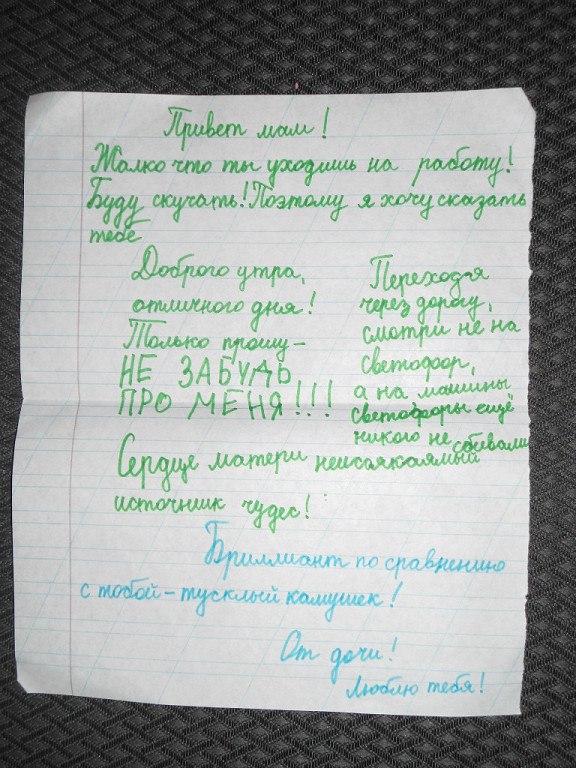 Привет мам!
Жалко что ты уходишь на работу!
Буду скучать! Поэтому я хочу сказать
тебе
Доброго утра,
отличного дня!
Только прошу –
НЕ ЗАБУДЬ
ПРО МЕНЯ!!!
Переходя
через дорогу,
смотри не на
светофор,
а на машины
светофоры ещё
никого не сбивали
Сердце матери неиссякаямый
источник чудес!
Бриллиант по сравнению
с тобой – тусклый камушек!
От дочи!
Люблю тебя!